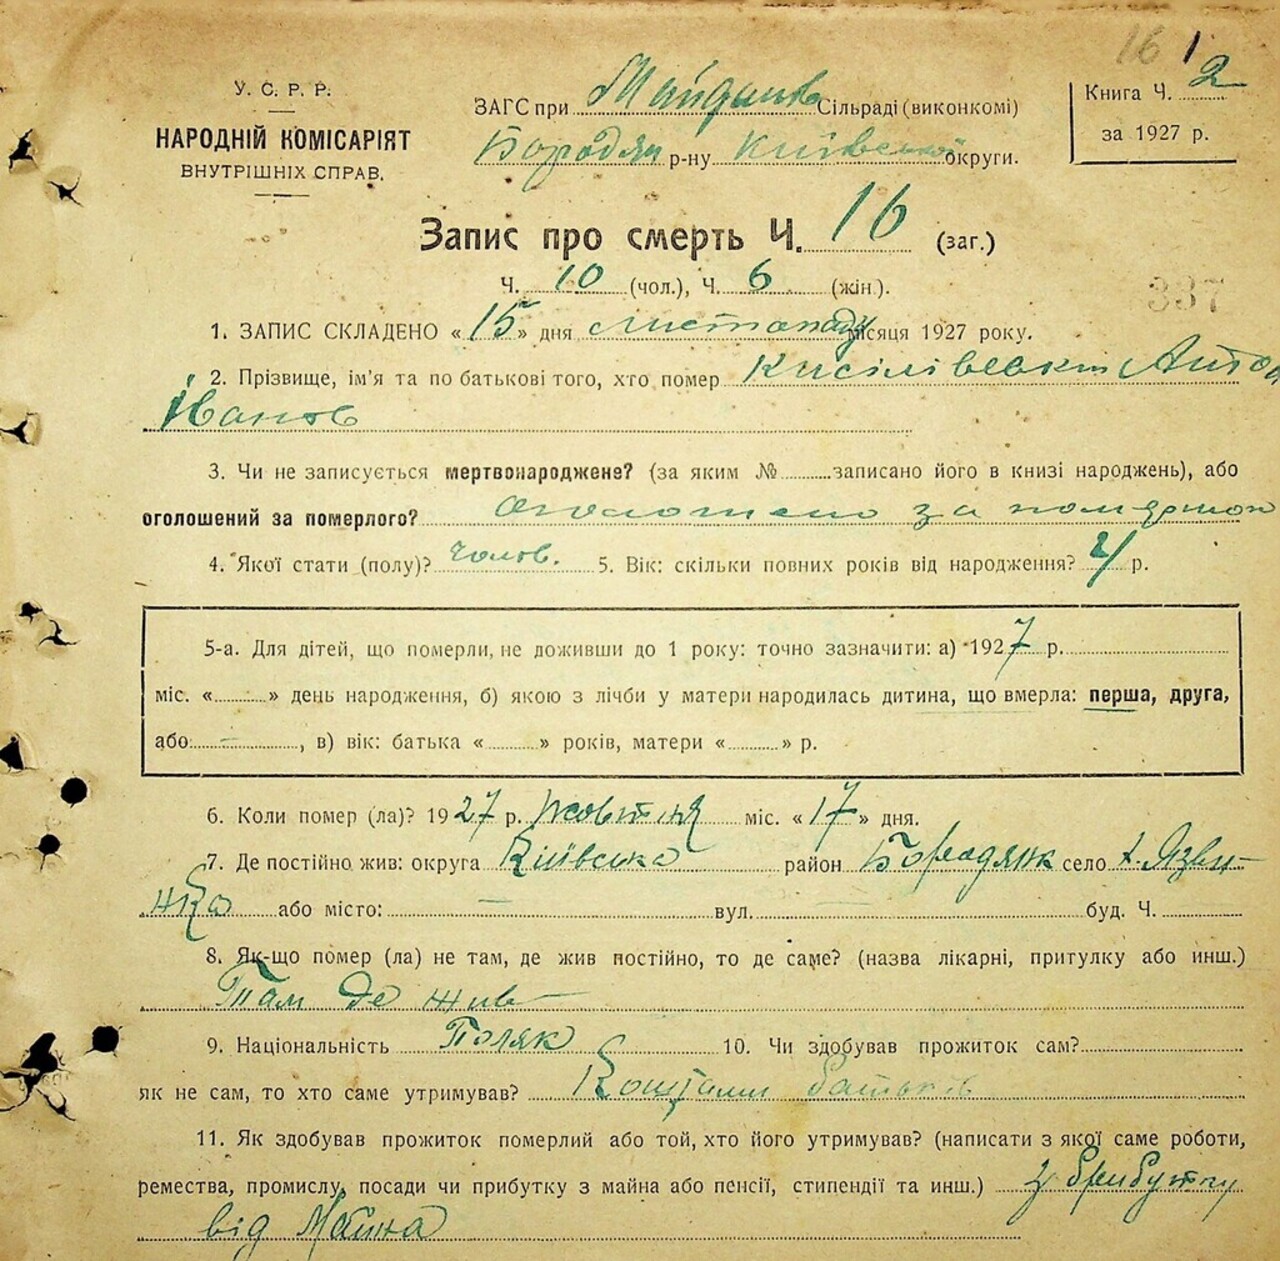 16 1
У. С. Р. Р.
НАРОДНІЙ КОМІСАРІЯТ
ВНУТРІШНІХ СПРАВ.
ЗАГС при Майданов Сільраді (виконкомі)
Бородян р-ну Київської округи.
Книга Ч. 2
за 1927 р.
Запис про смерть Ч. 16 (заг.)
Ч. 10 (чол.), Ч. 6 (жін.).
337
1. ЗАПИС СКЛАДЕНО «15» дня листопаду місяця 1927 року.
2. Прізвище, ім'я та по батькові того, хто помер Кисілівські Антон
Іванов
3. Чи не записується мертвонароджене? (за яким № записано його в книзі народжень), або
оголошений за померлого? Оголошено за помершого
4. Якої стати (полу)? чолов. 5. Вік: скільки повних років від народження? 4 р.
5-а. Для дітей, що померли, не доживши до 1 року: точно зазначити: а) 1927 р.
міс. « » день народження, б) якою з лічби у матери народилась дитина, що вмерла: перша, друга,
або: – , в) вік: батька « » років, матери « » р.
6. Коли помер (ла)? 1927 р. жовтня міс. «17» дня.
7. Де постійно жив: округа Київська район Бородянк село х. Язвин-
ка або місто: – вул. – буд. Ч.
8. Як-що помер (ла) не там, де жив постійно, то де саме? (назва лікарні, притулку або инш.)
Там де жив
9. Національність Поляк 10. Чи здобував прожиток сам?
як не сам, то хто саме утримував? Коштами батьків
11. Як здобував прожиток померлий або той, хто його утримував? (написати з якої саме роботи,
ремества, промислу, посади чи прибутку з майна або пенсії, стипендії та инш.) З прибутку
від Майна